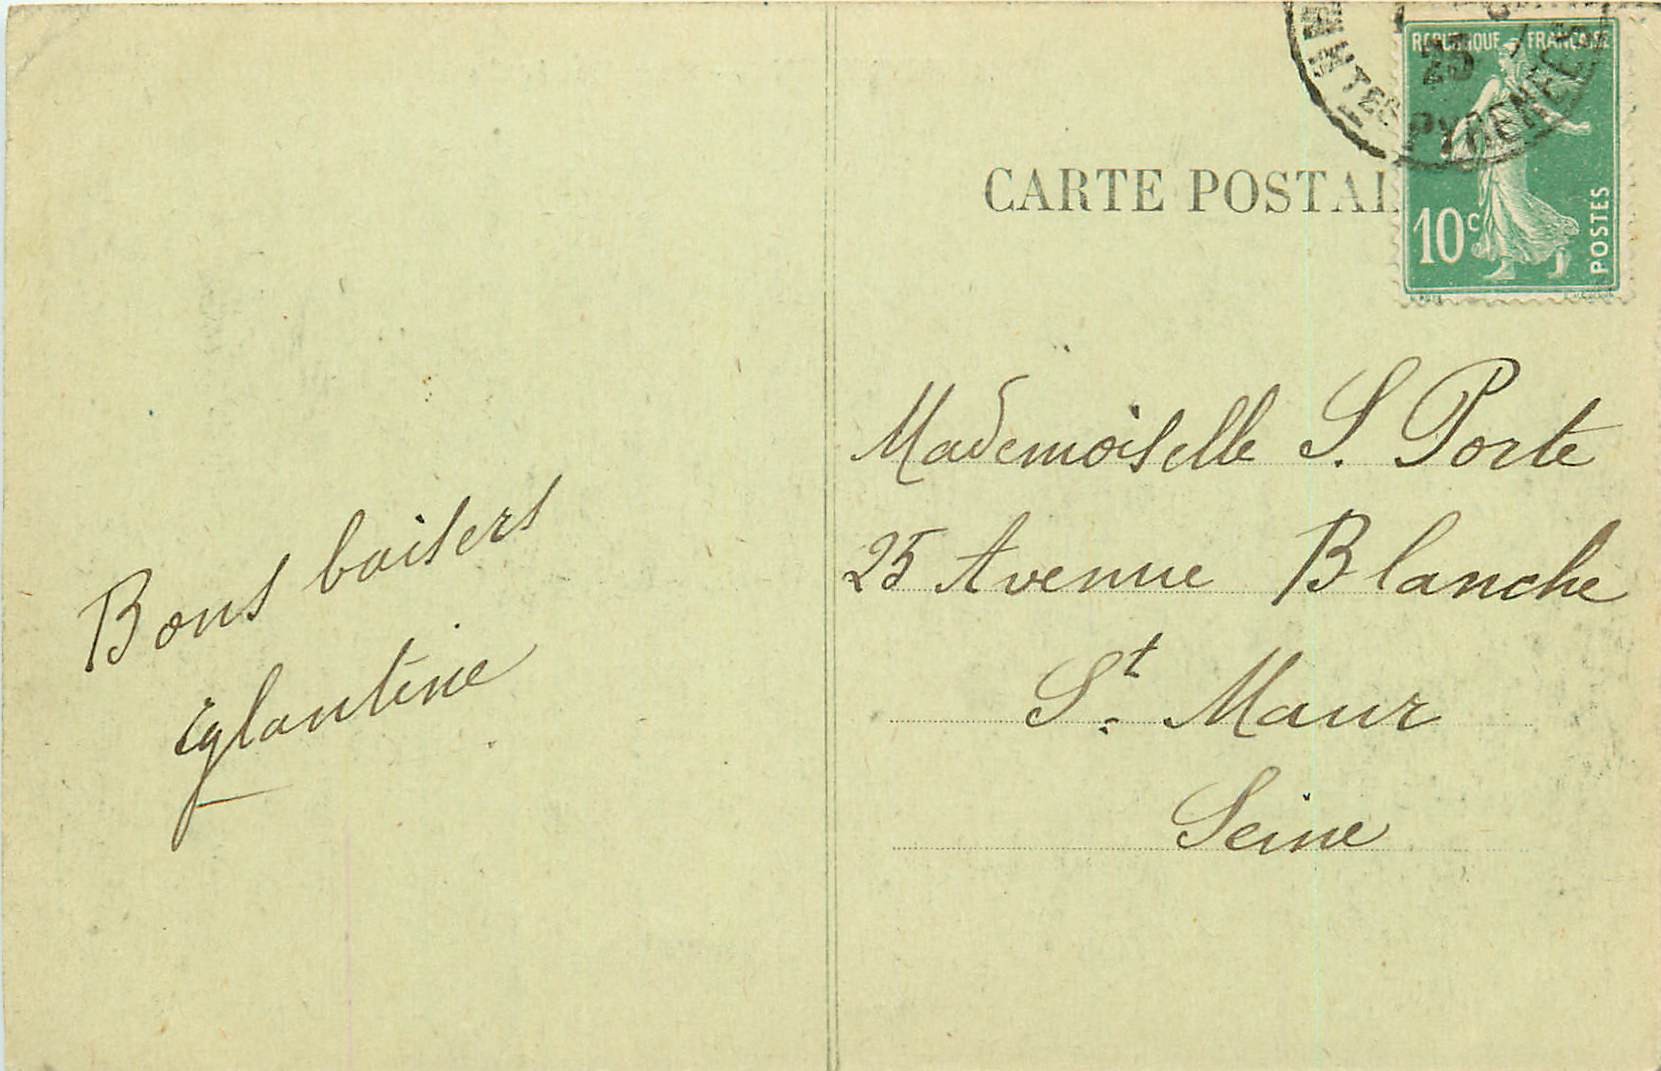 CARTE POSTAL
REPUBLIQUE FRANCAISE
25
PYRENEES
10c
POSTES
Mademoiselle S. Porte
25 Avenue Blanche
St. Maur
Seine
Bons baisers
Eglantine